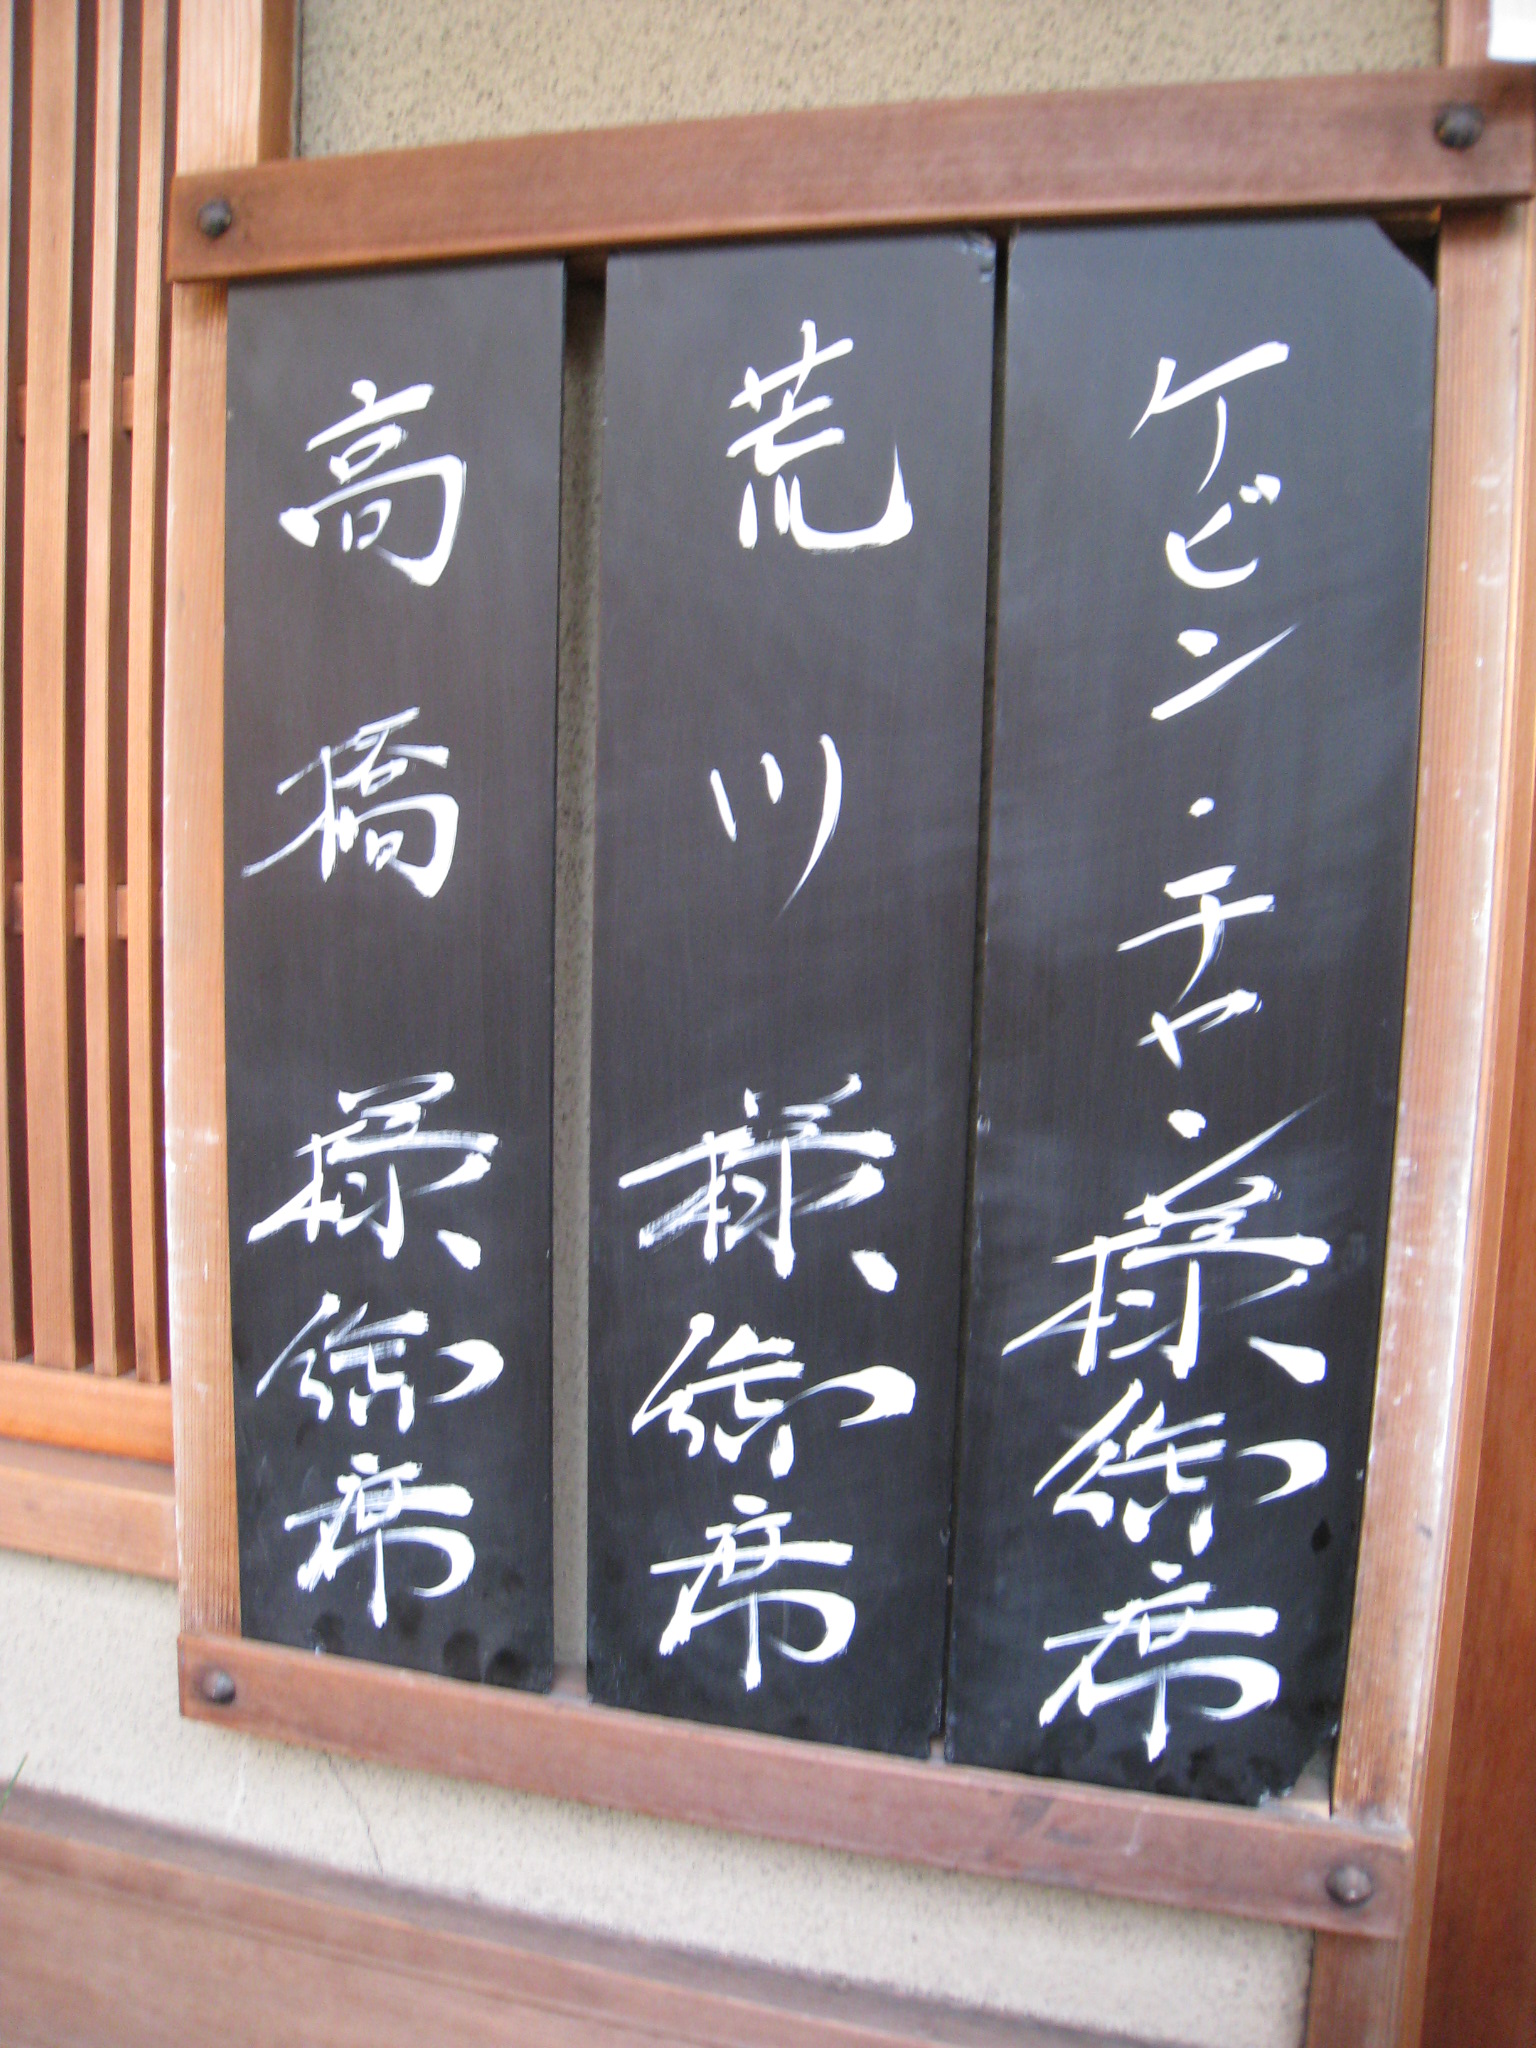 ケビン・チャン様御席
荒川様御席
高橋様御席